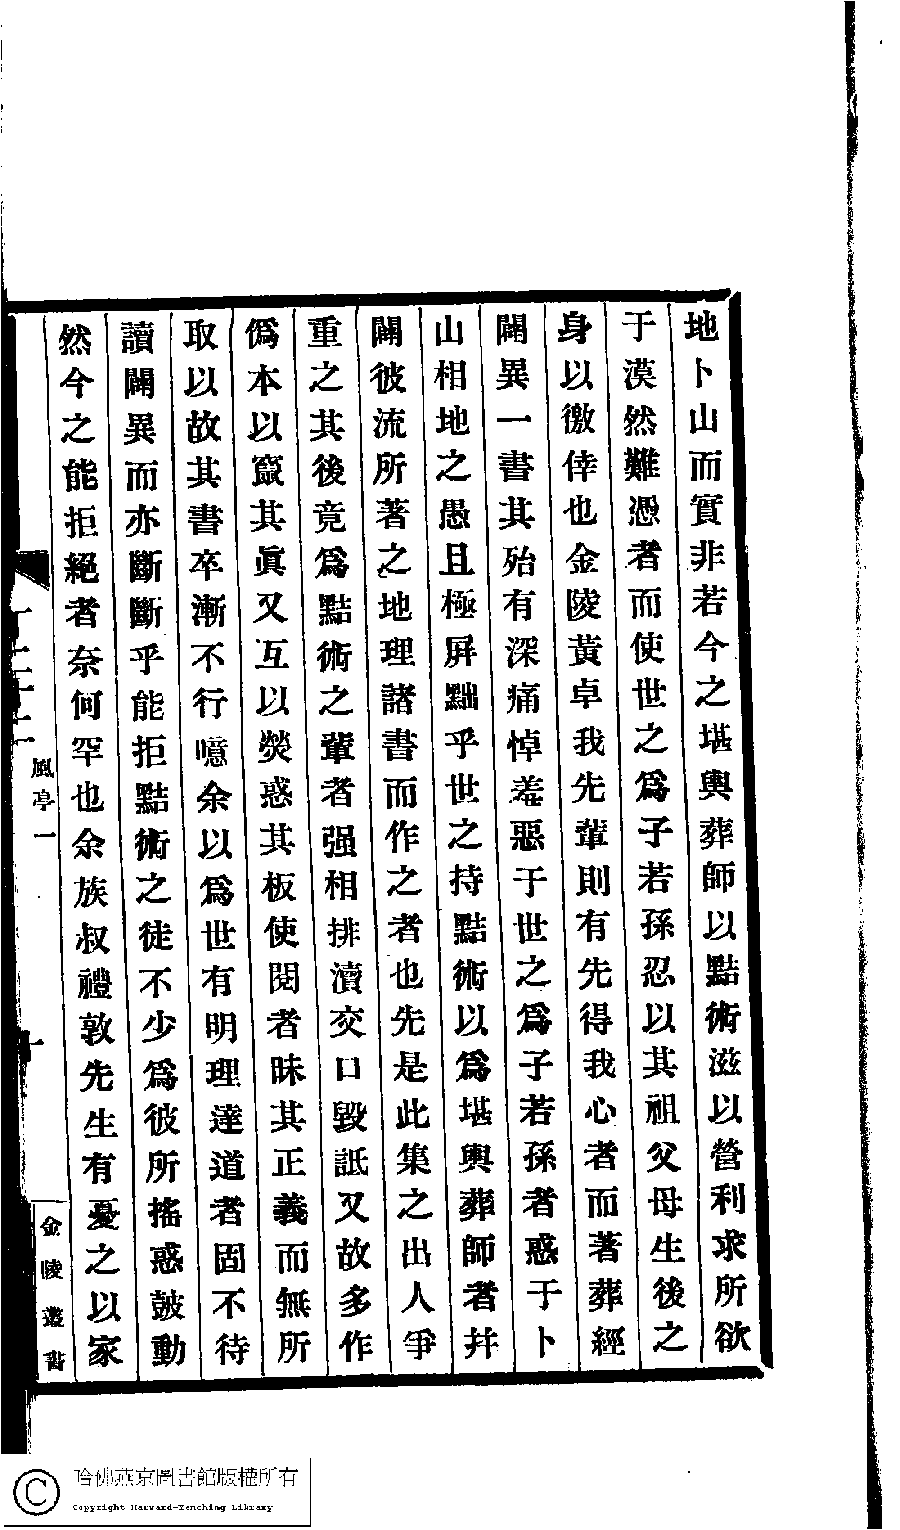 地卜山而實非若今之堪輿葬師以黠術滋以營利求所欲
于漠然難憑者而使世之爲子若孫忍以其祖父母生後之
身以徼倖也金陵黃卓我先輩則有先得我心者而著葬經
闢異一書其殆有深痛悼羞惡于世之爲子若孫者惑于卜
山相地之愚且極屏黜乎世之持黠術以爲堪輿葬師者幷
闢彼流所著之地理諸書而作之者也先是此集之出人爭
重之其後竟爲黠術之輩者强相排瀆交口毀詆又故多作
僞本以竄其眞又互以熒惑其板使閱者昧其正義而無所
取以故其書卒漸不行噫余以爲世有明理達道者固不待
讀闢異而亦斷斷乎能拒黠術之徒不少爲彼所搖惑鼓動
然今之能拒絕者奈何罕也余族叔禮敦先生有憂之以家
風亭一
十
金陵叢書
哈佛燕京圖書館版權所有
Copyright Harvard-Yenching Library